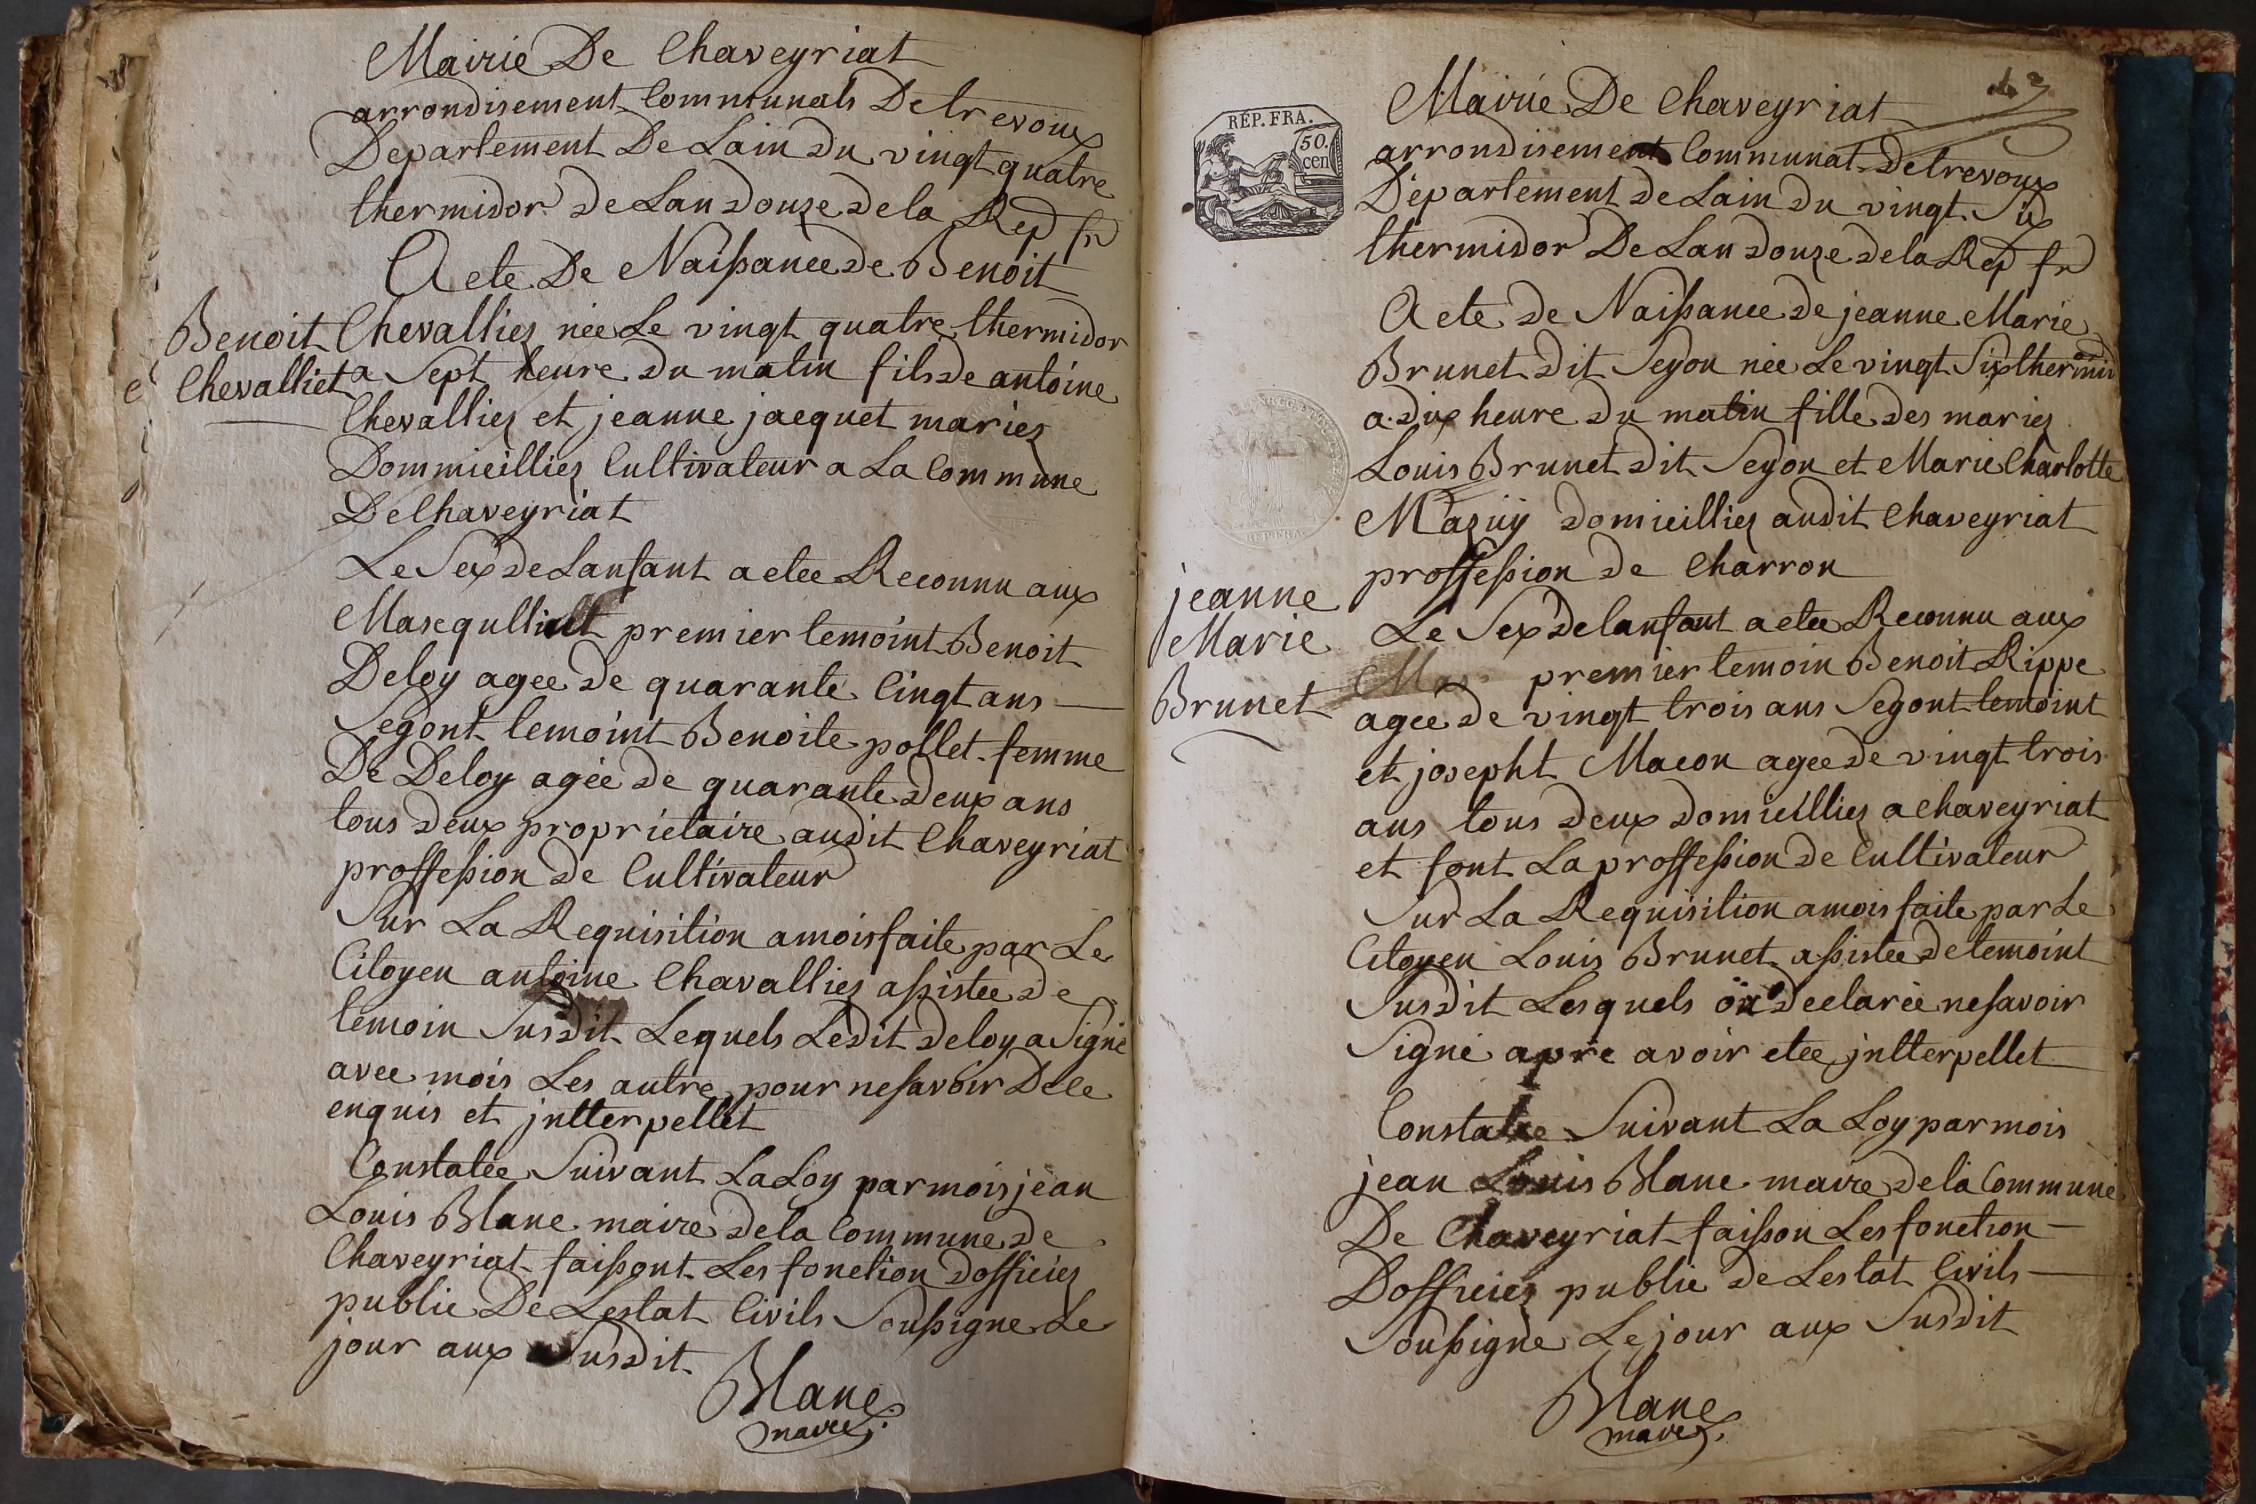 Mairie De Chaveyriat
arrondisement Communals De trevoux
Departement De Lain du vingt quatre
thermidor de Lan douze dela Rep fr
Acte De Naissance de Benoit
Benoit
Chevalliet
Chevalliez née Le vingt quatre thermidor
a Sept heure du matin fils de antoine
Chevalliez et jeanne jacquet mariez
Dommicilliez Cultivateur a La Commune
De Chaveyriat
Le Sex de Lanfant a etee Reconnu aux
premier temoint Benoit
Deloy agee de quarante Cingt ans
Segont temoint Benoite pollet femme
De Deloy agée de quarante deux ans
tous deux proprietaire audit Chaveyriat
proffession de Cultivateur
Sur La Requisition a mois faite par Le
Citoyen antoine Chavalliez assistee de
temoin Susdit Lequels Ledit deloy a Signé
avec mois Les autre pour ne savoir De ce
enquis et jntterpellet
Constatee Suivant La Loy par mois jean
Louis Blanc maire dela Commune de
Chaveyriat faissont Les fonction dofficiez
public De Lestat Civils Soussigne Le
jour aux Susdit
Blanc
maire
43
RÉP. FRA.
50.
cen
Mairie De Chaveyriat
arrondisement Communat De trevoux
Departement de Lain du vingt Six
thermidor De Lan douze dela Rep fr
Acte de Naissance de jeanne Marie
Brunet dit Seyon née Le vingt Six thermidor
a dix heure du matin fille des mariez
Louis Brunet dit Seyon et Marie Charlotte
Mazuÿ domicilliez audit Chaveyriat
proffession de Charron
jeanne
Marie
Brunet
Le Sex de lanfant a etee Reconnu aux
Mas premier temoin Benoit Rippe
agée de vingt trois ans Segont temoint
et josepht Macon agee de vingt trois
ans tous deux domicilliez a Chaveyriat
et font La proffession de Cultivateur
Sur La Requisition a mois faite par Le
Citoyen Louis Brunet assistee de temoint
Susdit Lesquels on declarée ne savoir
Signé apre avoir etee jntterpellet
Constatee Suivant La Loy par mois
jean Louis Blanc maire dela Commune
De Chaveyriat faisson Les fonction
Dofficiez public de Lestat Civils
Soussigne Le jour aux Susdit
Blanc
maire